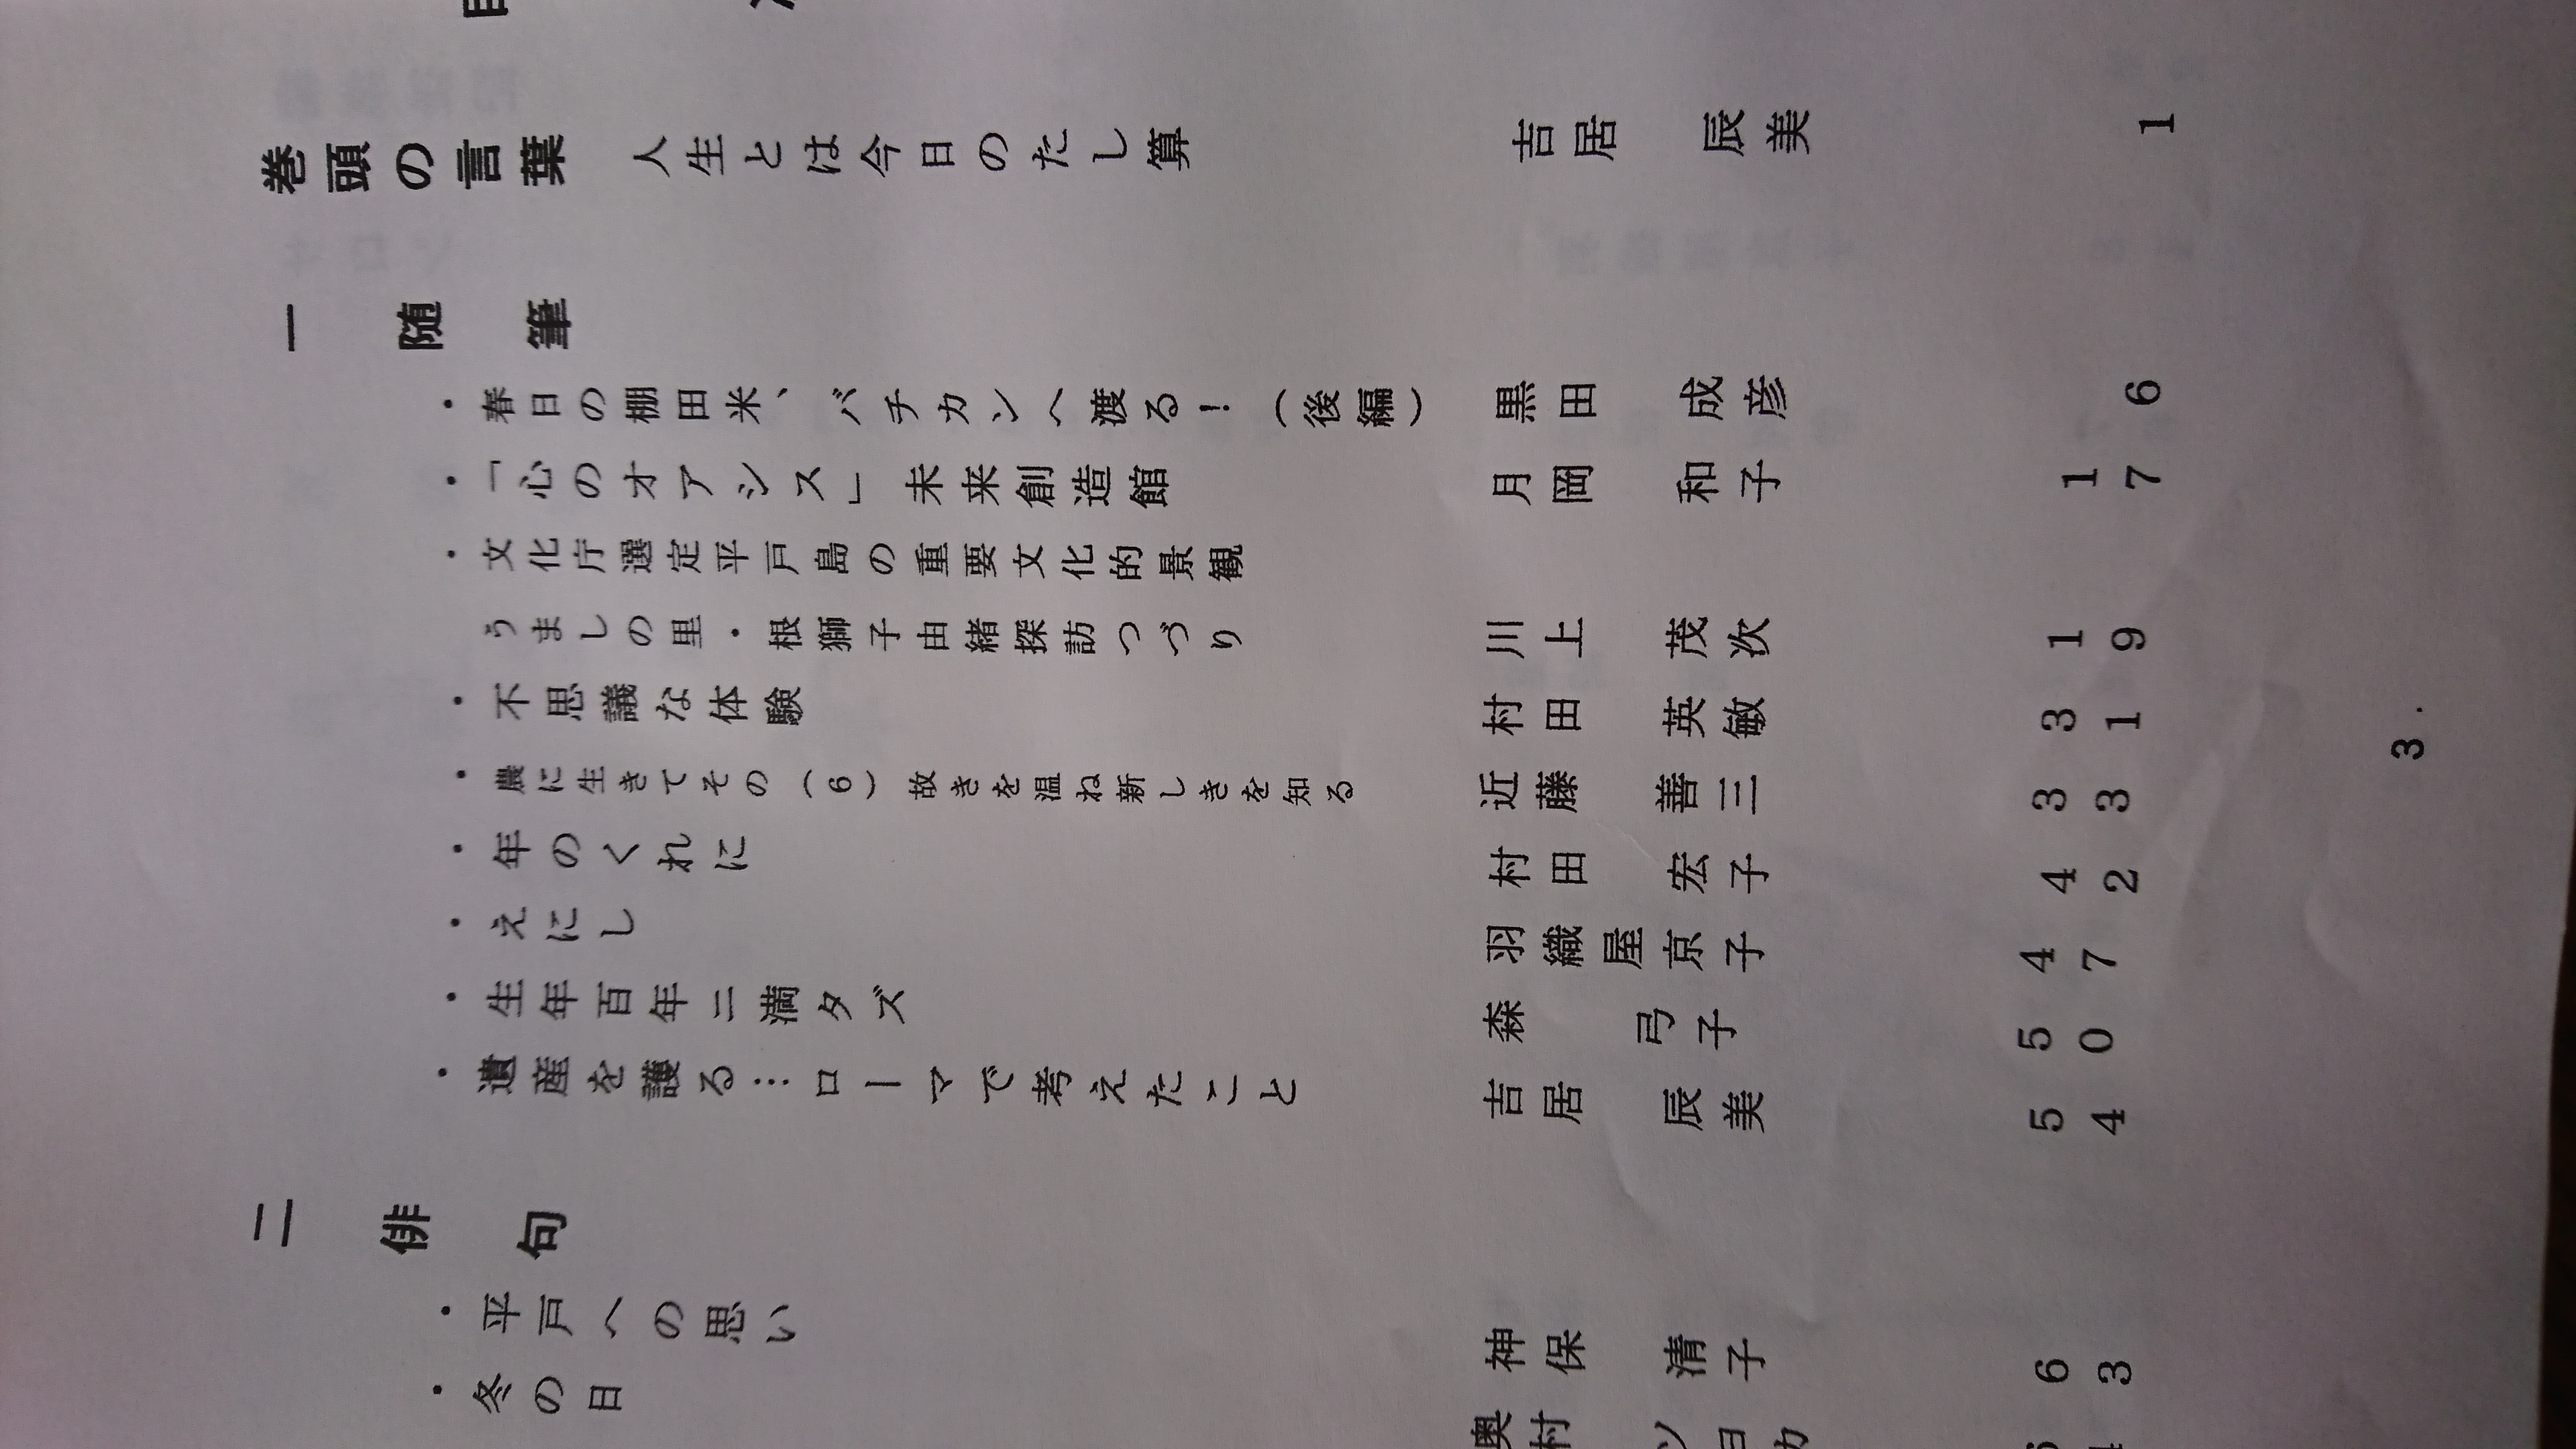 巻頭の言葉 人生とは今日のたし算 吉居 辰美 1
一 随 筆
・春日の棚田米、バチカンへ渡る！（後編） 黒田 成彦 6
・「心のオアシス」未来創造館 月岡 和子 17
・文化庁選定平戸島の重要文化的景観
うましの里・根獅子由緒探訪つづり 川上 茂次 19
・不思議な体験 村田 英敏 31
・農に生きてその（6）故きを温ね新しきを知る 近藤 善三 33
・年のくれに 村田 宏子 42
・えにし 羽織屋京子 47
・生年百年ニ満タズ 森 弓子 50
・遺産を護る…ローマで考えたこと 吉居 辰美 54
二 俳 句
・平戸への思い 神保 清子 63
・冬の日 奥村 ツヨカ
3